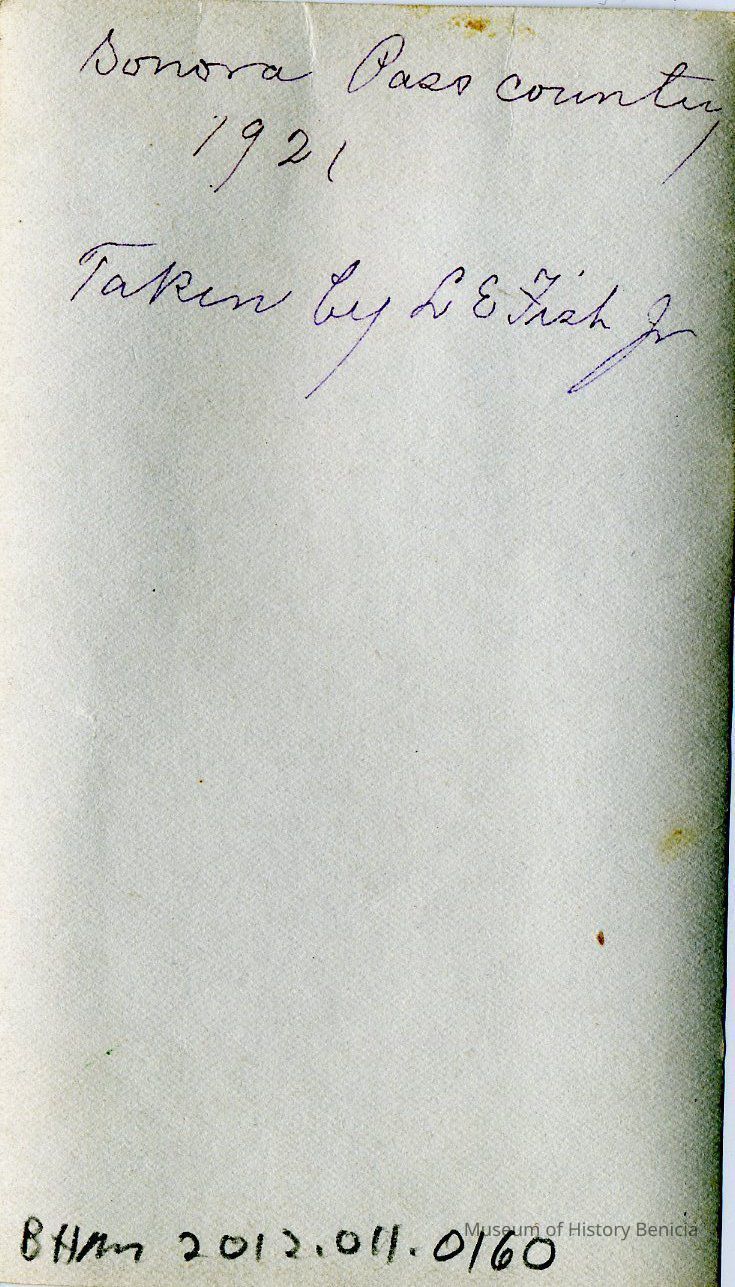 Sonora Pass country
1921
Taken by L E Fish Jr
Museum of History Benicia
BHM 2012.011.0160